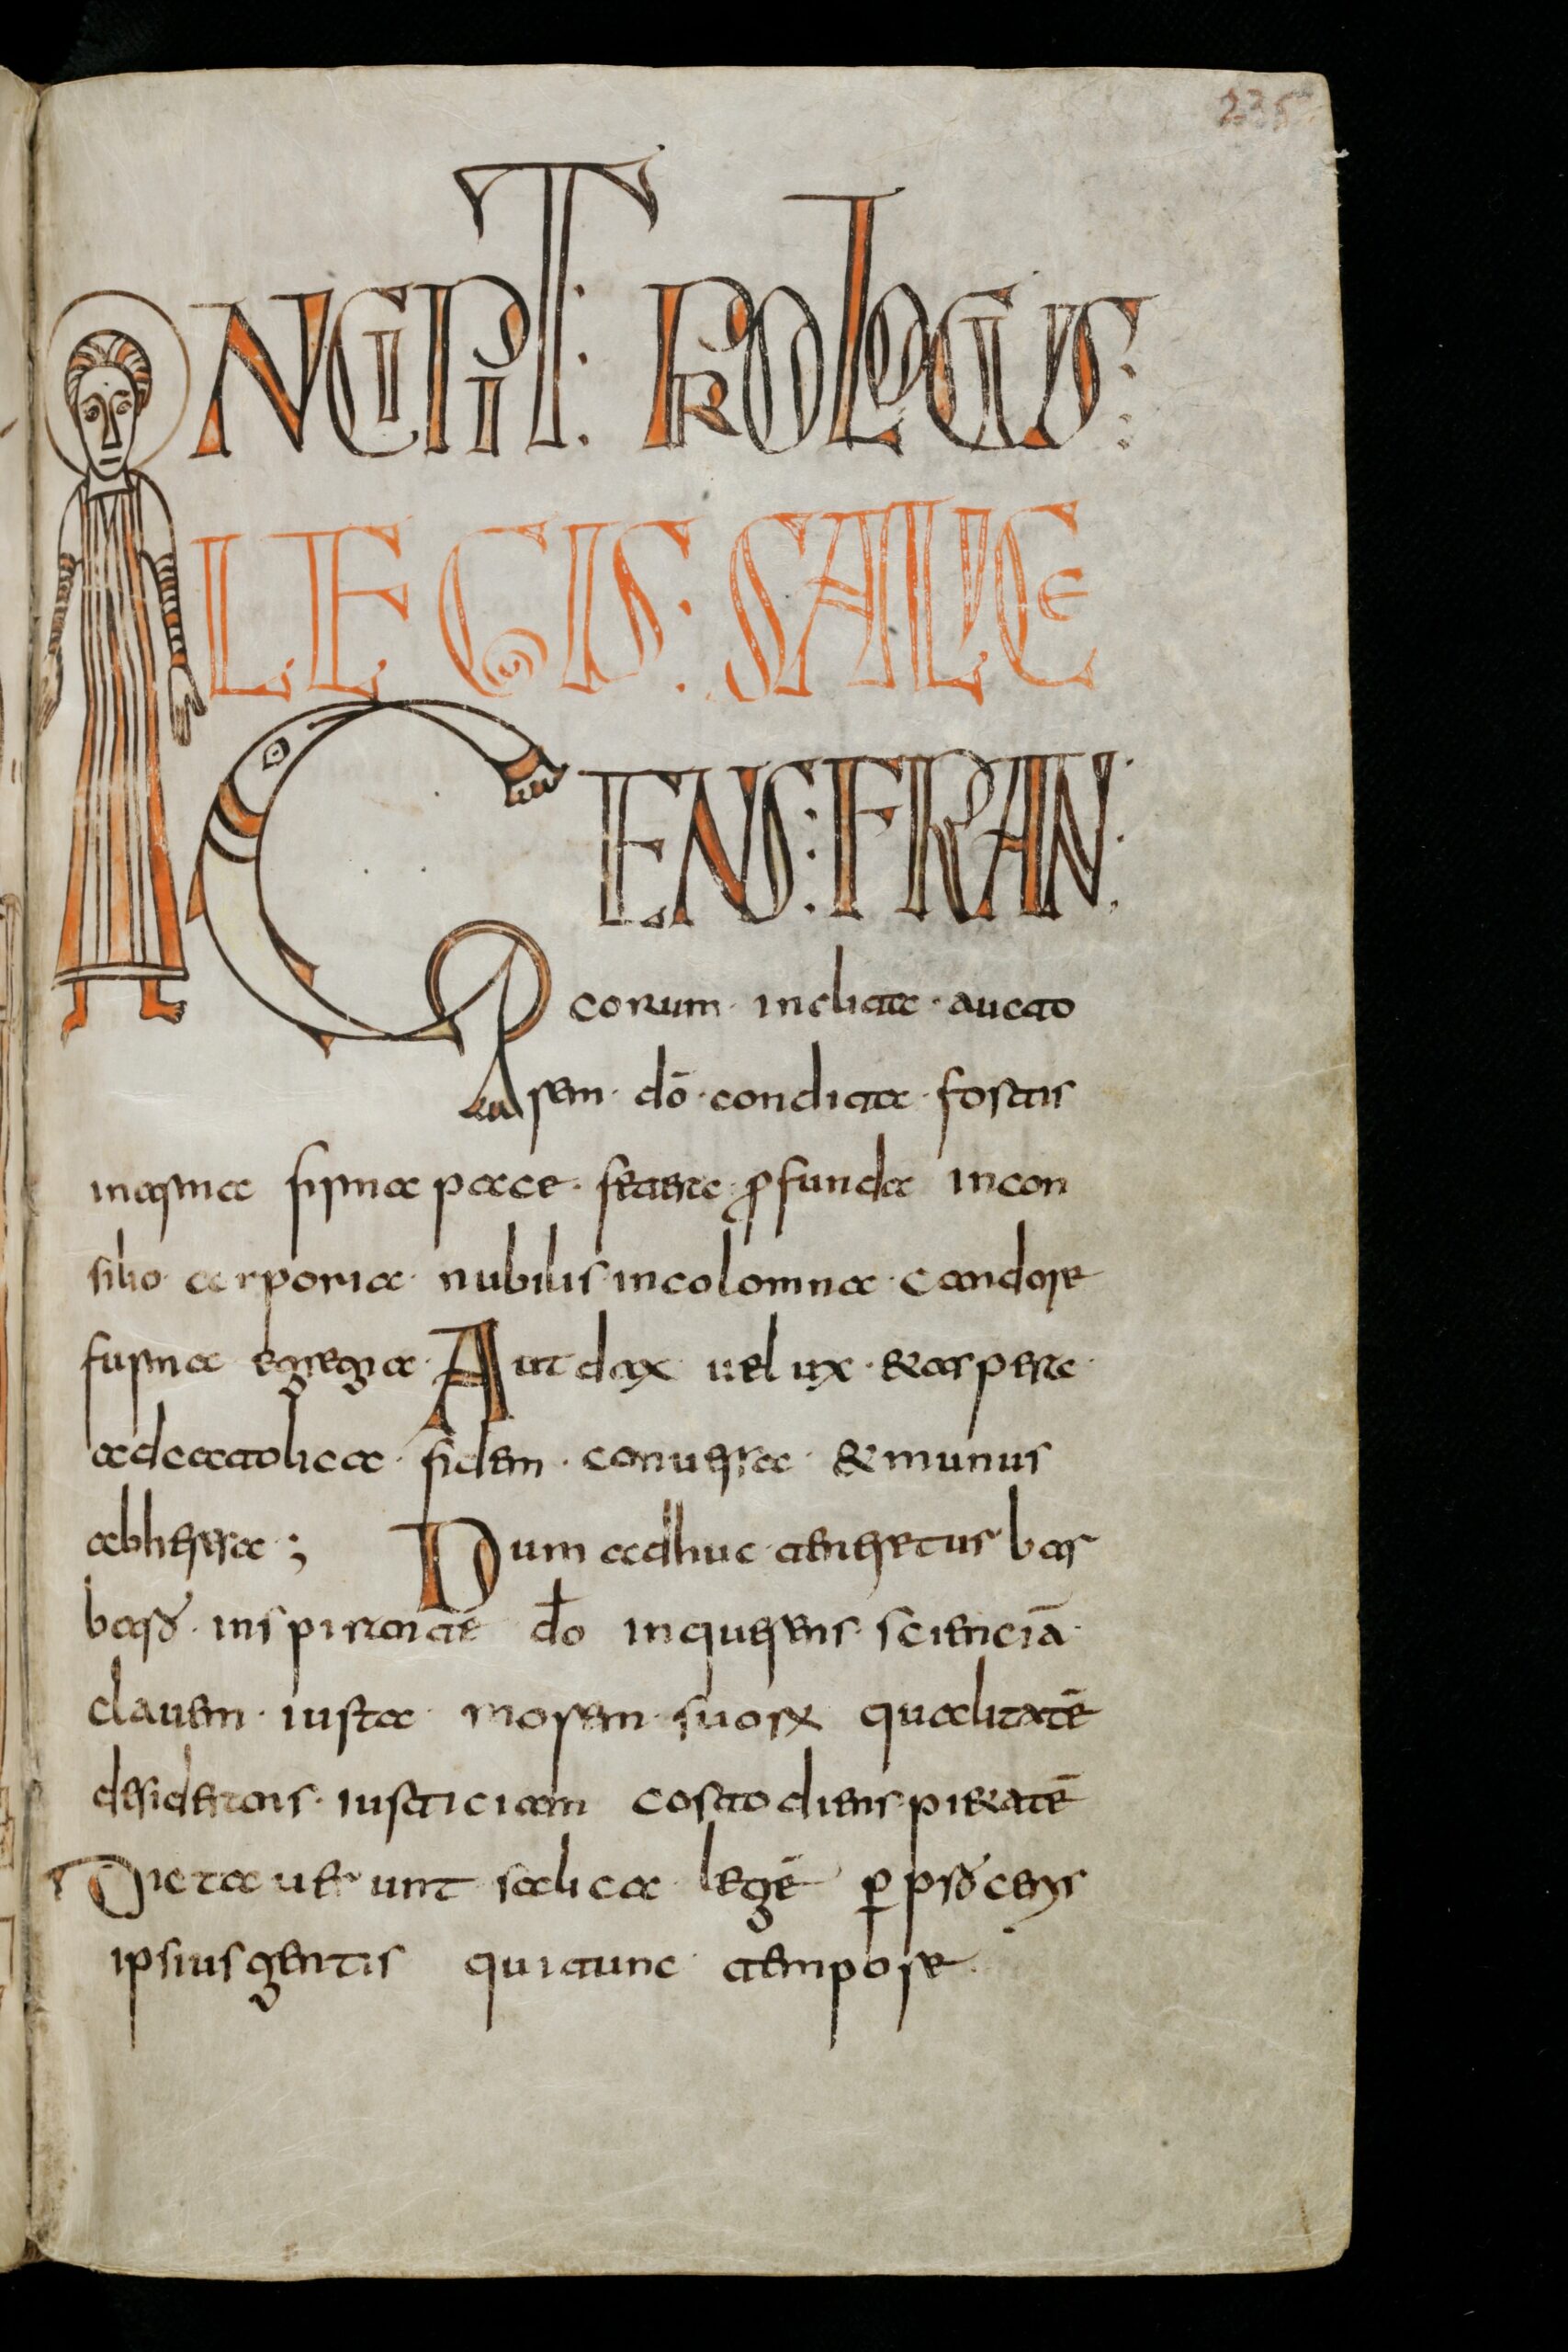 235
INCIPIT: PROLOGUS:
LEGIS: SALICE
GENS: FRAN:
corum · inclita · aucto
rem · dō · condita · fortis
inarma firma pace · fetere ꝓfunda incon
silio corporia · nubilis · incolomna · candore
fusma egregia · Autdax uelux · &aspera ·
adcatolica · fidem · conuersa · &munus
abherisa ; Dum adhuc teneretur bar
bar inspirante do inquerens scienciā
clauem · iusta morem suorꝝ qualitatē
desiderans · iusticiam costodiens pietatē
Dictauerunt salica legē ꝑ
ipsius gentis qui tunc tempore